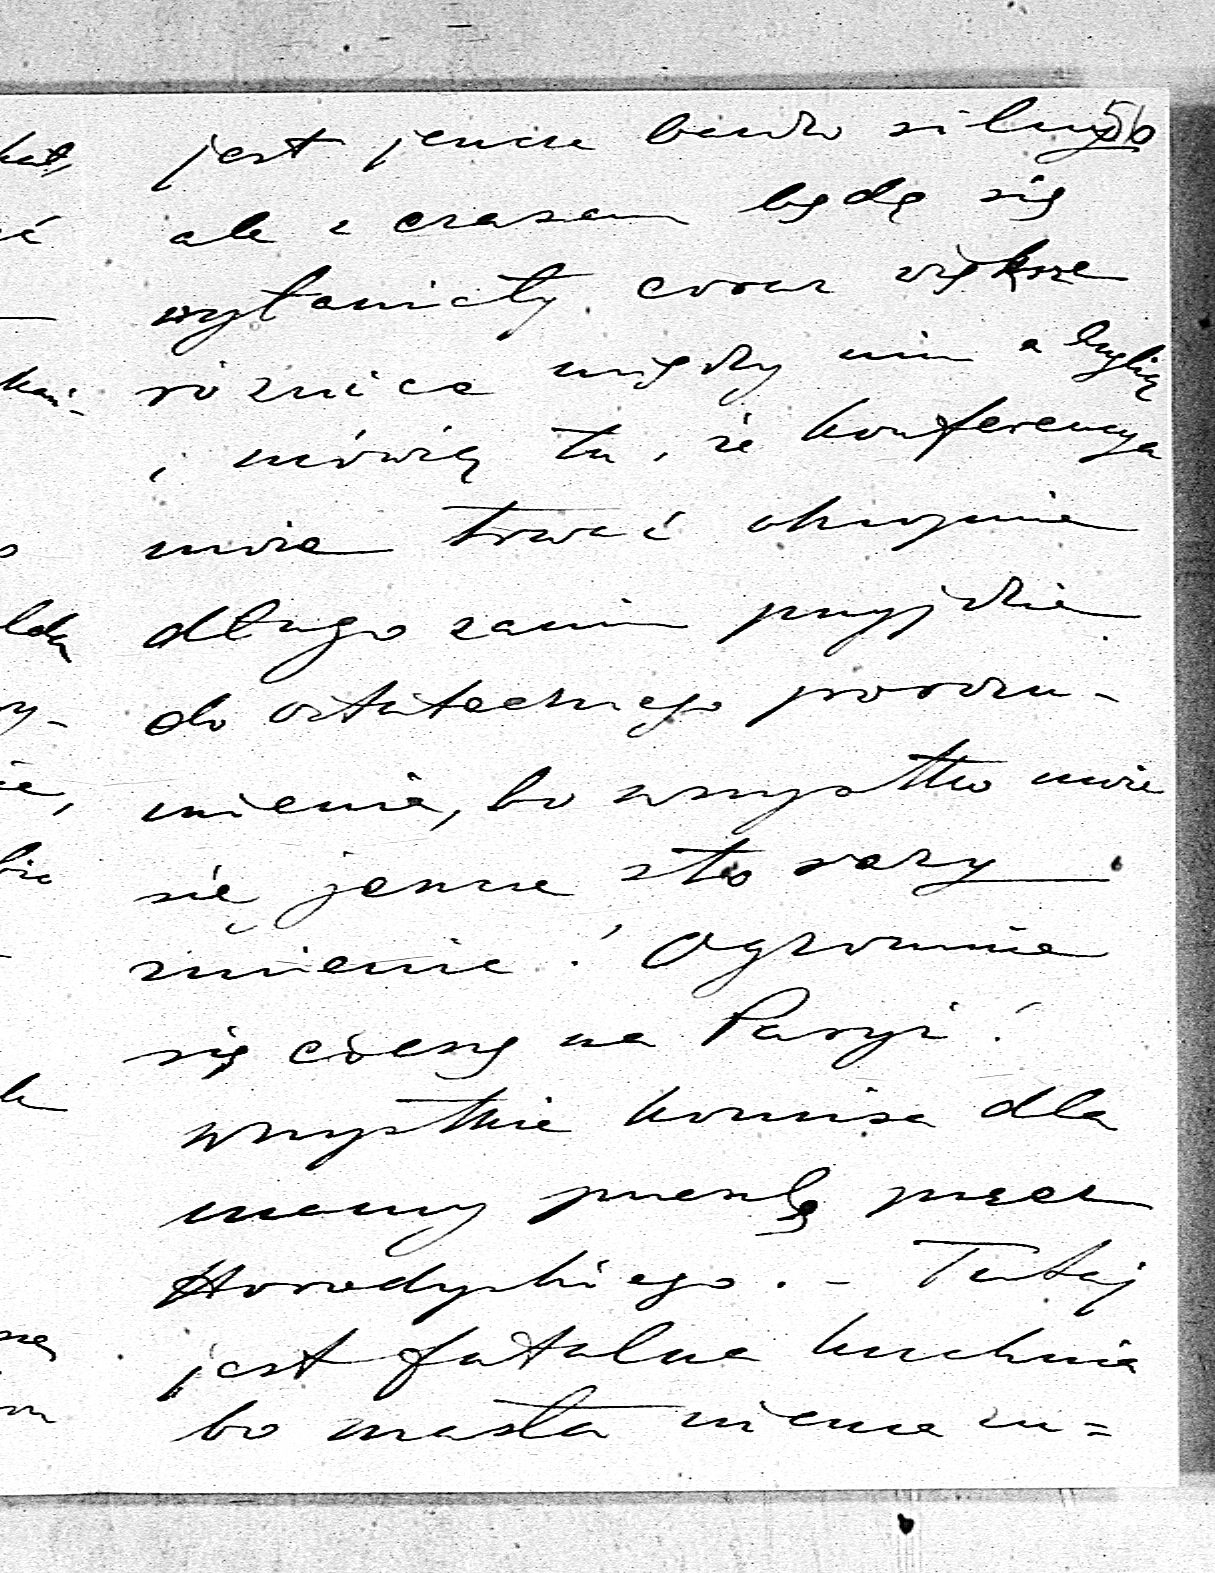 56
jest jeszcze bardzo silny
ale z czasem będą się
wyłaniały coraz większe
różnice między nim a Anglią
i mówią tu, że konferencya
może trwać okropnie
długo zanim przyjdzie
do ostatecznego porozu-
mienia, bo wszystko może
się jeszcze sto razy
zmienić! Ogromnie
się cieszę na Paryż!
wszystkie komisa dla
mamy prześlę przez
Horodyskiego. – Tutaj
jest fatalna kuchnia
bo masła niema zu=